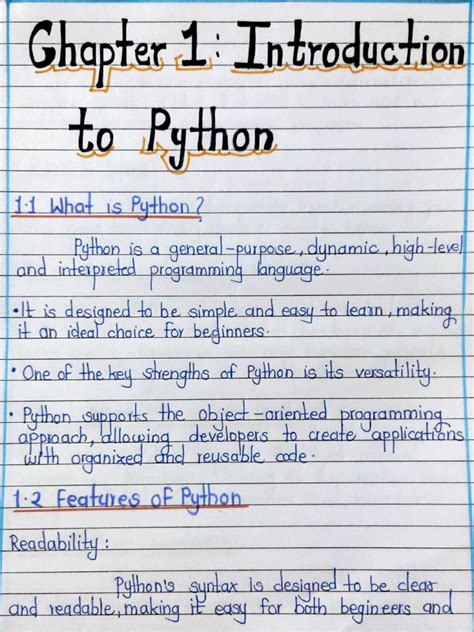 Chapter 1: Introduction
to Python
1.1 What is Python?
Python is a general-purpose, dynamic, high-level
and interpreted programming language.
• It is designed to be simple and easy to learn, making
it an ideal choice for beginners.
• One of the key strengths of Python is its versatility.
• Python supports the object-oriented programming
approach, allowing developers to create applications
with organized and reusable code.
1.2 Features of Python
Readability:
Python's syntax is designed to be clear
and readable, making it easy for both begineers and